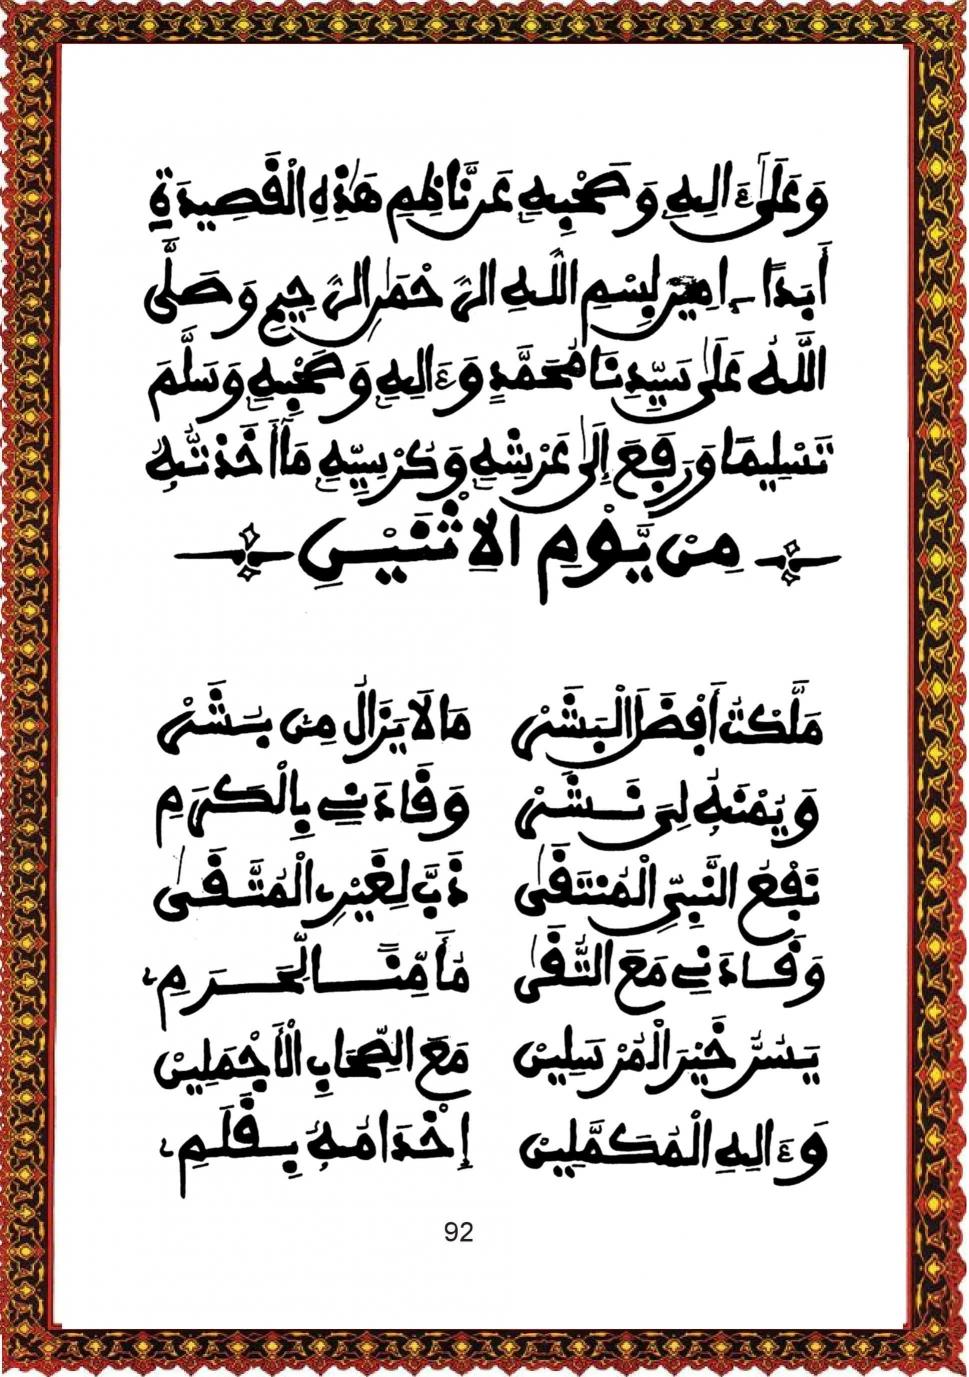 وَعَلَىٰ ءَالِهِ وَصَحْبِهِ عَن نَّاظِمِ هَٰذِهِ الْقَصِيدَةِ
أَبَدًا ءَامِينَ بِسْمِ اللَّهِ الرَّحْمَٰنِ الرَّحِيمِ وَصَلَّى
اللَّهُ عَلَىٰ سَيِّدِنَا مُحَمَّدٍ وَءَالِهِ وَصَحْبِهِ وَسَلَّمَ
تَسْلِيمًا وَرَفَعَ إِلَىٰ عَرْشِهِ وَكُرْسِيِّهِ مَا أَخَذتُّهُ
مِنْ يَّوْمِ الِاثْنَيْنِ
مَلَّكْتُ أَفْضَلَ الْبَشَرْ مَا لَا يَزَالُ مِنْ بَشَرْ
وَيُمْنُهُ لِي نَشَرْ وَقَادَنِي بِالْكَرَمِ
نَفْعُ النَّبِيِّ الْمُنتَقَىٰ ذَبَّ لِغَيْرِي الْمُتَّقَىٰ
وَقَادَنِي مَعَ التُّقَىٰ مُأَمِّنًا لِّحَرَمِي
يَسُرُّ خَيْرَ الْمُرْسَلِينْ مَعَ الصِّحَابِ الْأَجْمَلِينْ
وَءَالِهِ الْمُكَمَّلِينْ إِخْدَامُهُ بِقَلَمِي
92